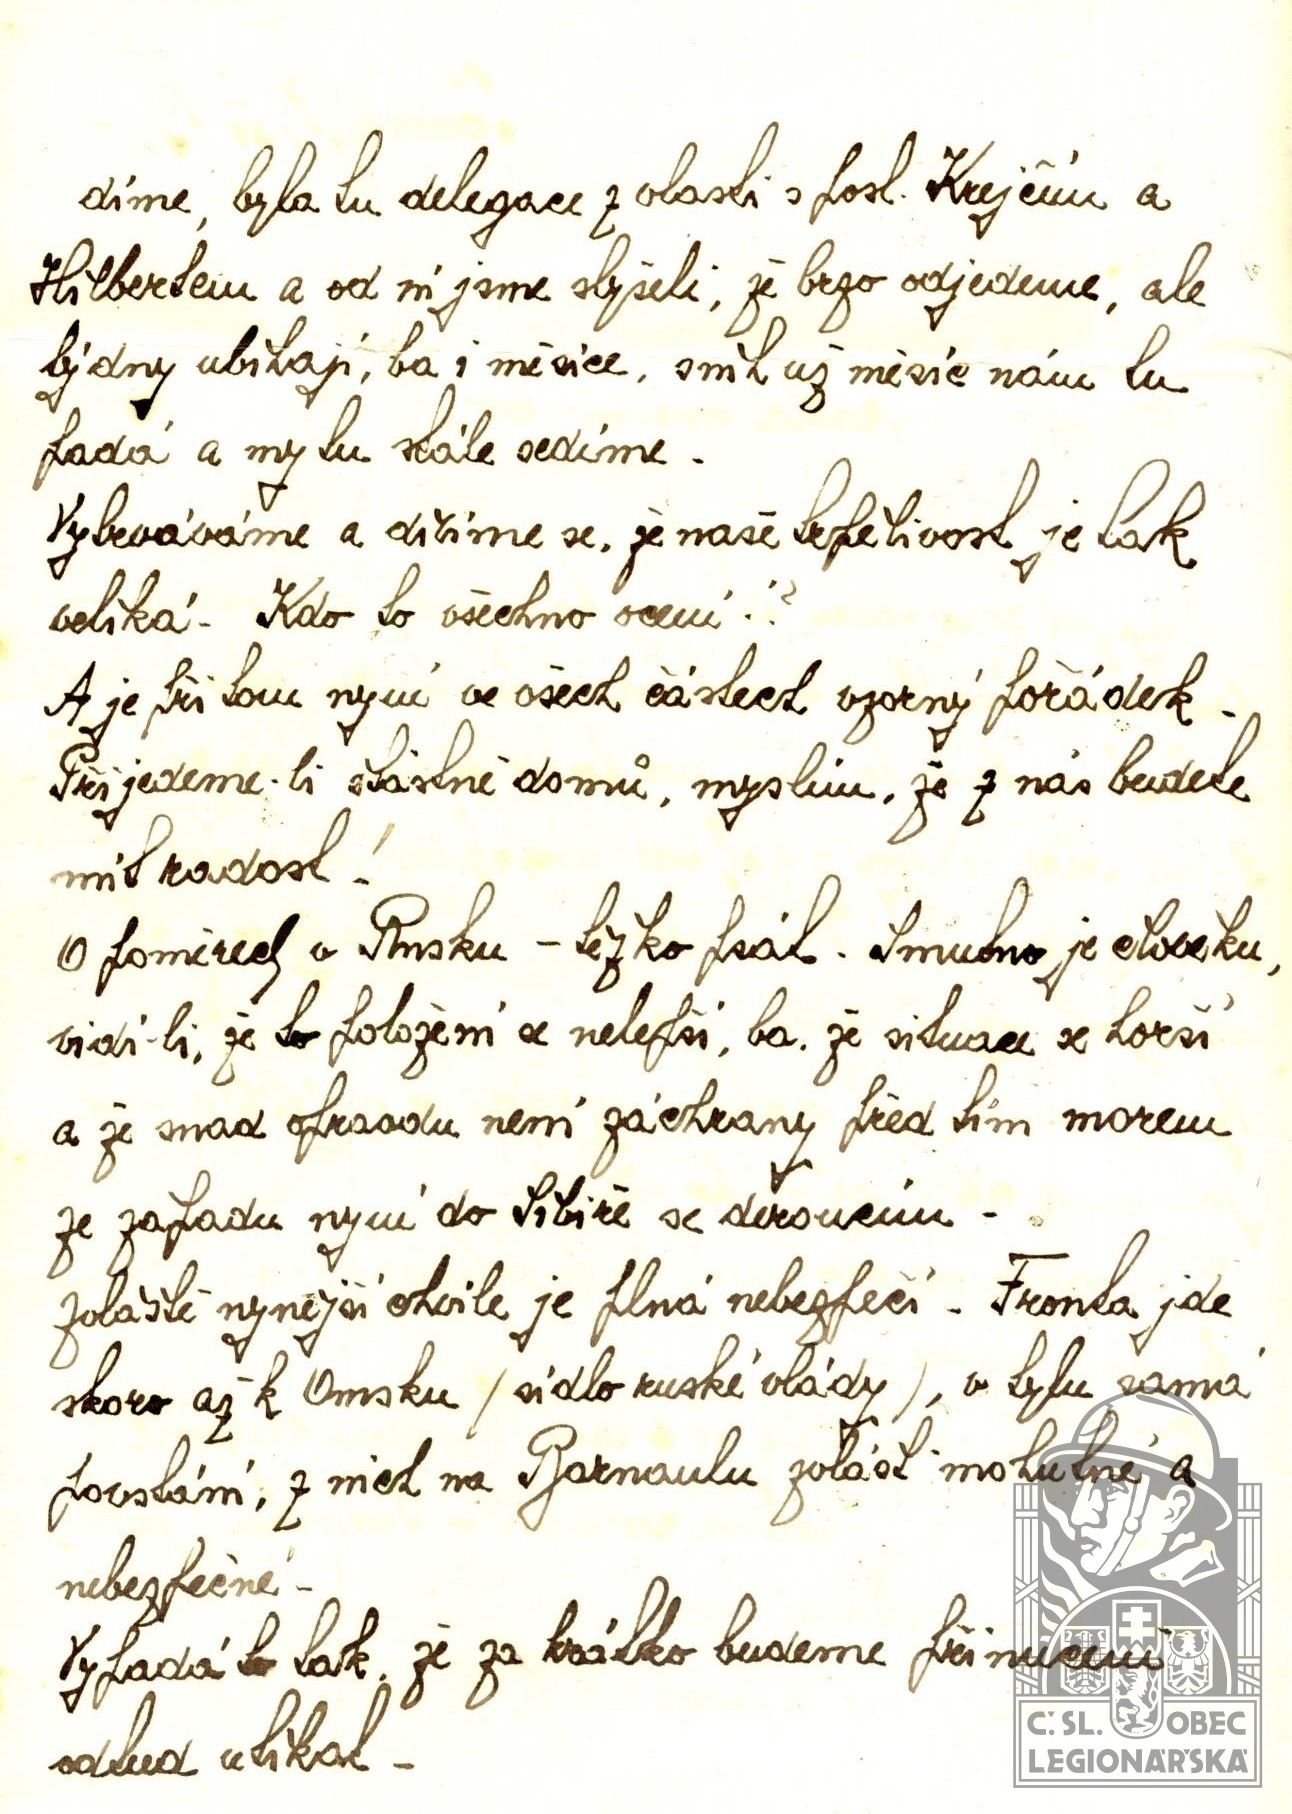 díme, byla tu delegace z vlasti s posl. Krejčím a
Hilbertem a od ní jsme slyšeli, že brzo odjedeme, ale
týdny ubíhají, ba i měsíce, sníh už měsíc nám tu
padá a my tu stále sedíme -
Vytrváváme a divíme se, že naše trpělivost je tak
veliká - Kdo to všechno ocení!?
A je při tom nyní ve všech částech vzorný pořádek -
Přijedeme-li šťastně domů, myslím, že z nás budete
mít radost!
O poměrech v Rusku - těžko psát. Smutno je člověku,
vidí-li, že to položení se nelepší, ba, že situace se horší
a že snad opravdu není záchrany před tím morem
ze západu nyní do Sibiře se deroucím -
zvláště nynější chvíle je plná nebezpečí - Fronta jde
skoro až k Omsku (sídlo ruské vlády), v tylu samá
povstání, z nich na Barnaulu zvlášť mohutné a
nebezpečné -
Vypadá to tak, že za krátko budeme přinuceni
odtud utíkat -
Č. SL. OBEC
LEGIONÁŘSKÁ